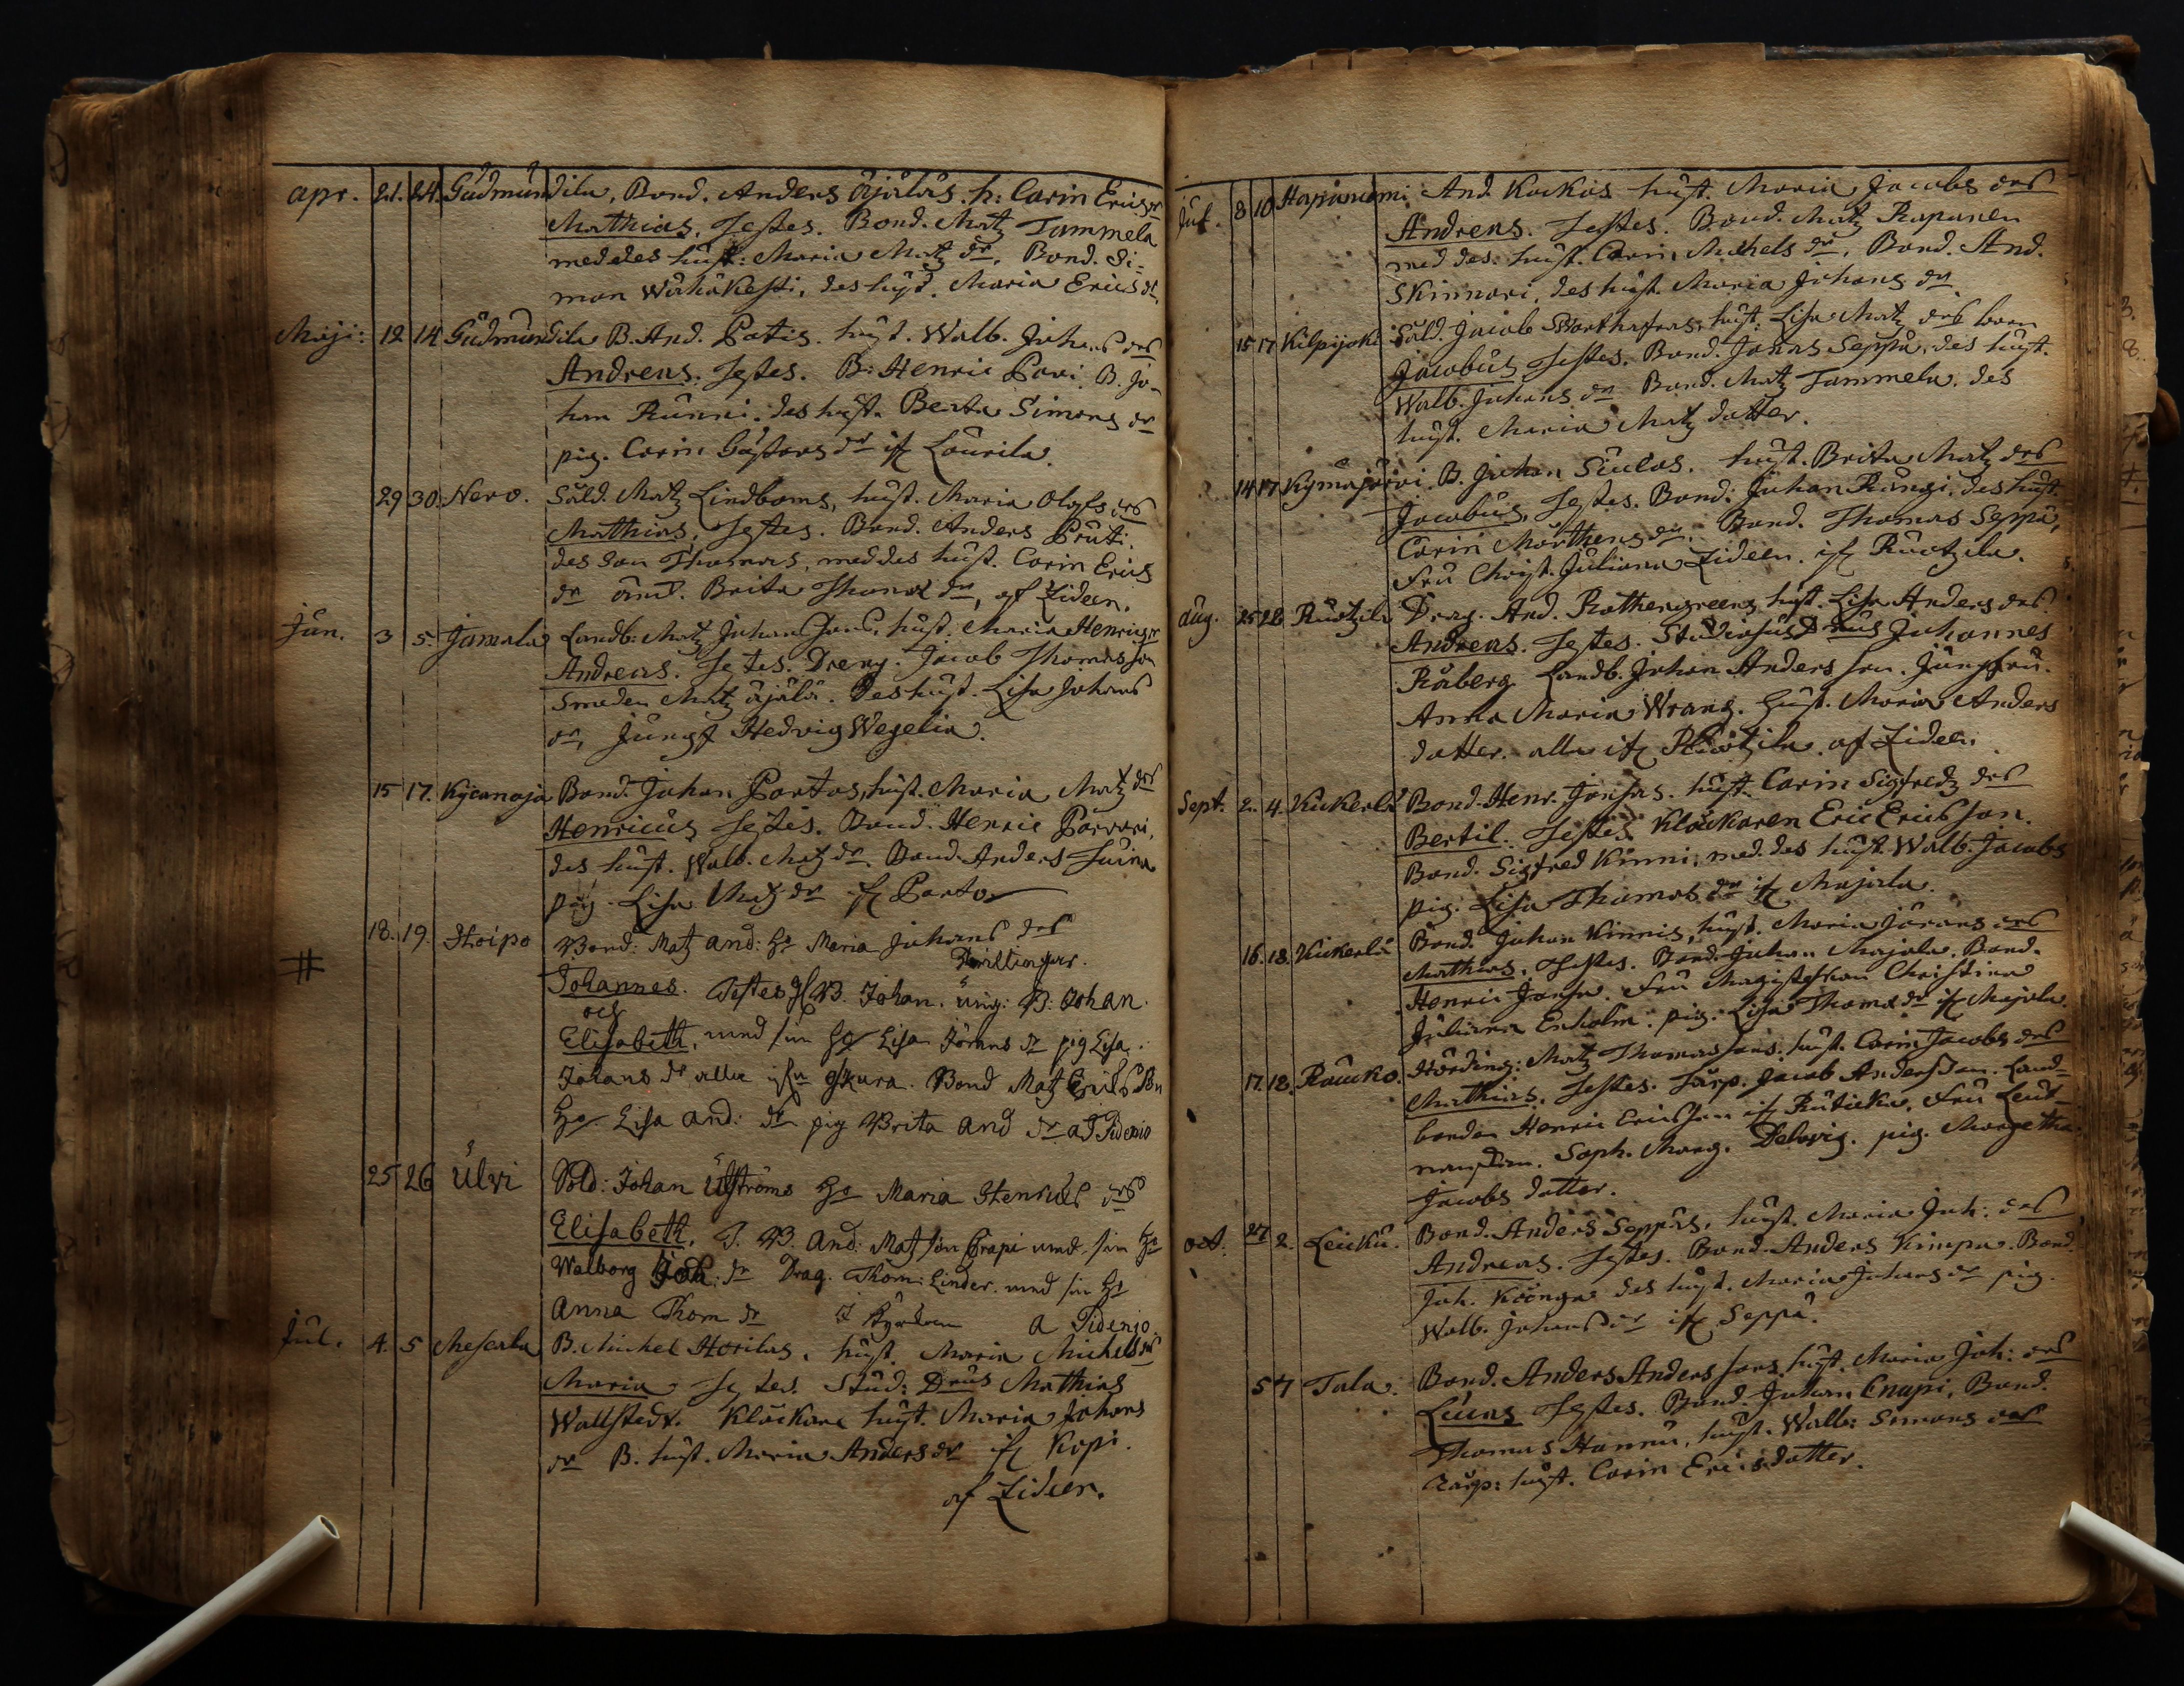 apr. 21. 24. Gudmundila, Bond. Anders Äjäläs. h: Carin Erics dr
Mathias. Testes. Bond. Matz Tammela
med des hust: Maria Matz dr, Bond. Si=
mon Wähäkesti, des hust. Maria Erics dr.
Maji: 12 14 Gudmundila B. And. Potis. hust. Walb. Johans drs
Andreas: Testes. B: Henric Pavi. B. Jo-
han Runni. des hust. Berta Simons dr
pig. Carin Gustavs dr ifr Laurila.
29 30. Nero. Såld. Matz Lindboms, hust. Maria Olofs drs
Mathias, Testes. Bond. Anders Pruti.
des son Thomas, med des hust. Carin Erics
dr Brita Thomas dr, af Tideen.
Jun. 3 5. Jamala Landb: Matz Johans Sons, hust. Maria Henrics dr
Andreas. Testes. Dreng. Jacob Thomas son
Smeden Matz Äjälä. Des hust. Lisa Johans
dr, Jungf Hedvig Wegelia.
15 17. Kycanoja Bond. Johan Portas, hust. Maria Matz drs
Henricus Testes. Bond. Henric Pärvari,
des hust. Walb. Matz dr. Bond. Anders
pig. Lisa Matz dr ifr Parto
18. 19. Hoipo Bond: Matz And: Ho Maria Johans drs
# Tvillingar.
Johannes. Testes B. Johan. ung: B: Johan.
och
Elisabeth, med sin Ho Lisa Jörans dr pig Lisa
Johans dr alla ifr Skura. Bond Matz Erics Son
Ho Lisa And: dr pig Brita And dr a Tidenio
25 26 Ulvi Sold: Johan Ulströms Ho Maria Henrics drs
Elisabeth. T. B. And: Matz son Crapi med sin Ho
Walborg Joh: dr Drag. Thom: Linder. med sin Ho
Anna Thom dr a Tidenio
Jul. 4. 5 Mescala B. Michel Horilas. hust. Maria Michels drs
Maria Testes. Stud: Dnus Mathias
Wallstedt. Klåckare hust. Maria Johans
dr B. hust. Maria Anders dr ifr Kopi.
af Tideen.
Jul. 8 10 Hapaniemi And. Kockas hust. Maria Jacobs drs
Andreas. Testes. Bond. Matz Rapanen
med des hust. Carin Michels dr, Bond. And.
Skinnari, des hust. Maria Johans dr.
15 17 Kilpijoki Såld. Jacob hust. Lisa Matz drs barn
Jacobus Testes. Bond. Jonas Seppä, des hust.
Walb. Johans dr Bond. Matz Tammela. des
hust. Maria Matz datter.
14 17 Kymäjärvi. B. Johan Siulas. hust. Brita Matz drs
Jacobus, Testes. Bond. Johan Rangi, des hust
Carin Mårthens dr. Bond. Thomas Seppä,
Fru Christ. Juliana Tideen. ifr Ruotzila.
Aug. 25 28 Ruotzila Drag. And. Rothengreens hust. Lisa Anders drs
Andreas. Testes. Studiosus Dnus Johannes
Råberg Landb. Johan Anders son. Jungfru
Anna Maria Wrang. hust. Maria Anders
datter. alla ifr Ruotzila. af Tideen.
Sept. 2. 4. Kukerlä Bond. Henr. Jonsas. hust. Carin Sigfredz drs
Bertil. Testes Klåckaren Eric Ericsson.
Bond. Sigfred Kinni, med des hust. Walb. Jacobs
pig. Lisa Thomas dr ifr Majala.
16. 18. Kukerlä Bond. Johan Kinnis, hust. Maria Jörans drs
Mathias. Testes. Bond. Johan Majala. Bond.
Henric Jonsa. Fru Magisterskan Christina
Juliana Enholm. pig. Lisa Thomas dr ifr Majala.
17. 18. Raucko. Matz Thomassons. hust. Carin Jacobs drs
Mathias. Testes. Jacob Andersson. Land-
bonden Henric Ericsson ifr Ruticka. Fru Leut-
nanskan. Soph. Marg. Delwig. pig. Margetha
Jacobs datter.
oct. 27 2. Leicku. Bond. Anders Seppäs, hust. Maria Joh: drs
Andreas. Testes. Bond. Anders Kimpa. Bond.
Joh. Köönga des hust. Maria Johans dr pig.
Walb. Johans dr ifr Seppä.
5 7 Tala. Bond. Anders Anders sons. hust. Maria Joh: drs
Lucas Testes. Bond. Johan Cnapi, Bond.
Thomas Hannu, hust. Walb: Simons drs
hust. Carin Erics datter.